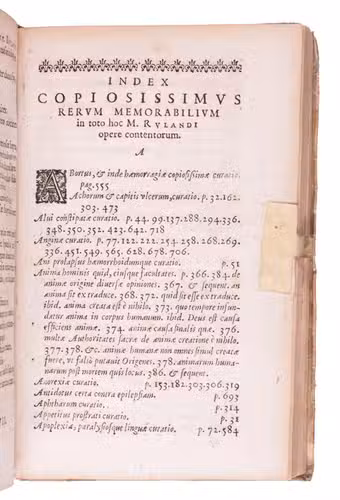 INDEX
COPIOSISSIMVS
RERVM MEMORABILIVM
in toto hoc M. RVLANDI
opere contentorum.
A
ABortus, & inde hæmorragiæ copiosissimæ curatio.
pag. 555
Achorum & capitis vlcerum, curatio. p. 32. 162.
303. 473
Alui constipatæ curatio. p. 44. 99. 137. 288. 294. 336.
348. 350. 352. 423. 642. 718
Anginæ curatio. p. 77. 122. 222. 254. 258. 268. 269.
336. 451. 549. 565. 628. 678. 706.
Ani prolapsus hæmorrhoidumque curatio. p. 51
Anima hominis quid, eiusque facultates. p. 366. 384. de
animæ origine diuersæ opiniones. 367. & sequent. an
anima sit ex traduce. 368. 372. quid sit esse ex traduce.
ibid. anima creata est è nihilo. 373. quo tempore infun-
datur anima in corpus humanum. ibid. Deus est causa
efficiens animæ. 374. animæ causa finalis quæ. 376.
multæ Authoritates sacræ de animæ creatione è nihilo.
377. 378. &c. animæ humanæ non omnes simul creatæ
fuere, vt falsò putauit Origenes. 378. animarum huma-
narum post mortem quis locus. 386. & sequent.
Anorexiæ curatio. p. 153. 182. 303. 306. 319
Antidotus certa contra epilepsiam. p. 693
Aphtharum curatio. p. 314
Appetitus prostrati curatio. p. 31
Apoplexiæ, paralysosque linguæ curatio. p. 72. 584